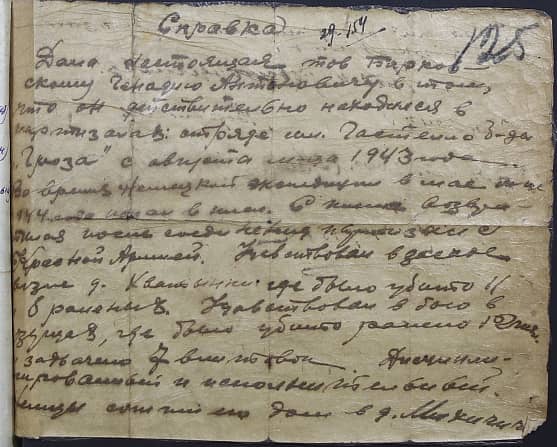 Справка
29-154
125
Дана настоящая тов Барков-
скому Генадию Антоновичу в том,
что он действительно находился в
партизанах отряде им.
Гроза" с августа 1943 года
во время немецкой экспедиции в мае
44 года попал в плен. С плена возвра-
тился после соединения с
Красной Армией. Участвовал в засаде
возле д. где было убито 11
8 раненых. Участвовал в бою в
где было убито ранено 15
захвачено 7 винтовок Дисципли-
нированный и исполнительный.
дом в д. Михничи